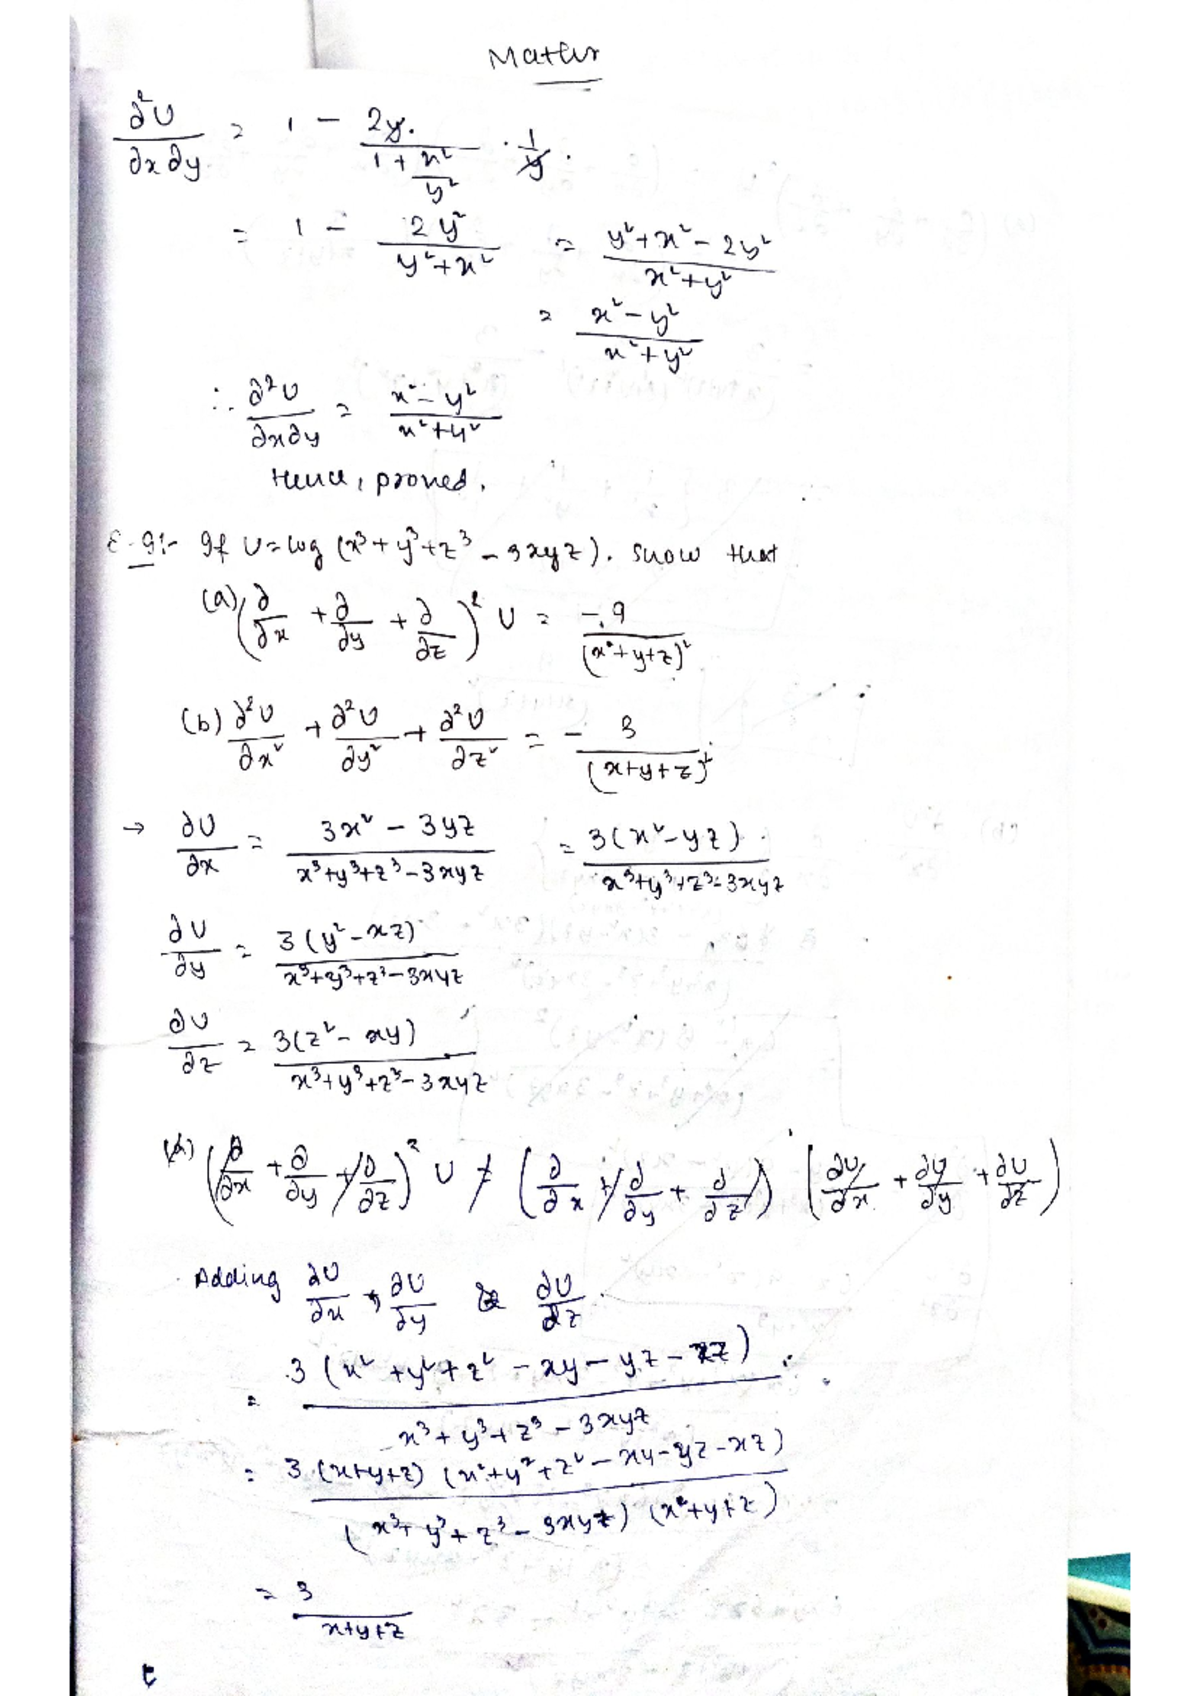 Maths
∂²U/∂x∂y = 1 - 2y/(1 + x²/y²) · 1/y.
= 1 - 2y²/(y²+x²) = (y²+x²-2y²)/(x²+y²)
= (x²-y²)/(x²+y²)
∴ ∂²U/∂x∂y = (x²-y²)/(x²+y²)
Hence, proved.
E.g:- If U = log (x³+y³+z³-3xyz). Show that
(a) (∂/∂x + ∂/∂y + ∂/∂z)² U = -9/(x+y+z)²
(b) ∂²U/∂x² + ∂²U/∂y² + ∂²U/∂z² = -3/(x+y+z)²
→ ∂U/∂x = (3x² - 3yz)/(x³+y³+z³-3xyz) = 3(x²-yz)/(x³+y³+z³-3xyz)
∂U/∂y = 3(y²-xz)/(x³+y³+z³-3xyz)
∂U/∂z = 3(z²-xy)/(x³+y³+z³-3xyz)
(a) (∂/∂x + ∂/∂y + ∂/∂z)² U = (∂/∂x + ∂/∂y + ∂/∂z) (∂U/∂x + ∂U/∂y + ∂U/∂z)
Adding ∂U/∂x, ∂U/∂y & ∂U/∂z.
= 3(x²+y²+z²-xy-yz-xz)/(x³+y³+z³-3xyz)
= 3(x+y+z)(x²+y²+z²-xy-yz-xz)/(x³+y³+z³-3xyz)(x+y+z)
= 3/(x+y+z)